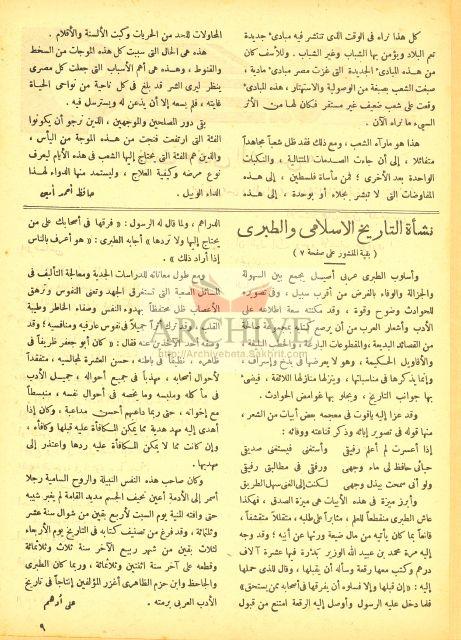 كل هذا نراه فى الوقت الذى تنتشر فيه مبادىء جديدة
تعم البلاد ويؤمن بها الشباب وغير الشباب . وللأسف كان
من هذه المبادىء الجديدة التى غزت مصر مبادىء مادية ،
صبغت الشعب بصبغة من الوصولية والاستهتار ، هذه المبادىء
وقعت على شعب ضعيف غير مستقر فكان لها من الأثر
السيىء ما نراه الآن .
هذا هو ما رآه الشعب ، ومع ذلك فقد ظل شعباً مجاهداً
متفائلا ، إلى أن جاءت الصدمات المتتالية ، والنكبات
الواحدة بعد الأخرى ؛ فمن مأساة فلسطين ، إلى هذه
المفاوضات التى لا تبشر بجلاء أو بوحدة ، إلى هذه
المحاولات للحد من الحريات وكبت الألسنة والأقلام .
هذه هى الحال التى سببت كل هذه الموجات من السخط
والقنوط ، وهذه هى أهم الأسباب التى جعلت كل مصرى
ينظر ليرى الشر قد بلغ فى كل ناحية من نواحى الحياة
غايته ، فلم يسعه إلا أن يذعن له ويسترسل فيه .
بقى دور المصلحين والموجهين ، الذين نرجو أن يكونوا
الفئة التى ارتفعت فنجت من هذه الموجة من اليأس ،
والذين هم الفئة التى يحتاج إليها الشعب فى هذه الأيام ليعرف
نوع مرضه وكيفية العلاج ، وليستمد منها الدواء لهذا
الداء الوبيل .
حافظ أحمد أمين
نشأة التاريخ الاسلامى والطبرى
( بقية المنشور على صفحة ٧ )
وأسلوب الطبرى عربى أصيل يجمع بين السهولة
والجزالة والوفاء بالغرض من أقرب سبيل ، وفى تصويره
للحوادث وضوح وقوة ، وقد مكنته سعة اطلاعه على
الأدب وأشعار العرب من أن يرصع كتابه
من القصائد البديعة والمقطوعات البارعة والخطب البليغة ،
والأقاويل الحكيمة ، وهو لا يعرضها فى بذخ وإسراف ،
وإنما يذكرها فى مناسباتها ، وينزلها منازلها اللائقة ، فيضىء
بها جوانب التاريخ ، ويجلو بها غوامض الحوادث .
وقد عزا إليه ياقوت فى معجمه بعض أبيات من الشعر ،
منها قوله فى تصوير إبائه وذكر قناعته ووفائه :
إذا أعسرت لم أعلم رفيقى وأستغنى فيستغنى صديقى
حيائى حافظ لى ماء وجهى ورفقى فى مطالبتى رفيقى
ولو أنى سمحت ببذل وجهى لكنت إلى الغنى سهل الطريق
وأبرز ميزة فى هذه الأبيات هى ميزة الصدق ، فهكذا
عاش الطبرى منقطعاً للعلم ، مثابراً على طلبه ، متقللا متقشفاً ،
قانعاً بما كان يأتيه من مال ضيعة ورثها عن أبيه ؛ وقد وجه
إليه مرة محمد بن عبيد الله الوزير بدرة فيها عشرة آلاف
درهم وكتب معها رقعة وسأله أن يقبلها ، وقال للذى حملها
إليه : « إن قبلها وإلا فسلوه أن يفرقها فى أصحابه ممن يستحق »
فلما دخل عليه الرسول وأوصل إليه الرقعة امتنع من قبول
الدراهم ، ولما قال له الرسول : « فرقها فى أصحابك على من
يحتاج إليها ولا تردها » أجابه الطبرى : « هو أعرف بالناس
إذا أراد ذلك »
ومع طول معاناته للدراسات الجدية ومعالجة التأليف فى
المسائل الصعبة التى تستغرق الجهد وتعنى النفوس وترهق
الأعصاب ظل محتفظاً بهدوء النفس وصفاء الخاطر وطيبة
القلب ، وقد ترك أثراً جميلاً فى نفوس عارفيه ومنافسيه ؛ وقد
وصفه أحد الآخذين عنه فقال : « كان أبو جعفر ظريفاً فى
ظاهره ، نظيفاً فى باطنه ، حسن العشرة لمجالسيه ، متفقداً
لأحوال أصحابه ، مهذباً فى جميع أحواله ، جميل الأدب
فى مأكله وملبسه وما يخصه فى أحوال نفسه ، منبسطاً
مع إخوانه ، حتى ربما داعبهم أحسن مداعبة ، وكان إذا
أهدى إليه مهد هدية مما يمكن المكافأة عليه قبلها وكافأه ،
وإن كانت مما لا يمكن المكافأة عليه ردها واعتذر إلى
مهديها .
وكان صاحب هذه النفس النبيلة والروح السامية رجلا
أسمر إلى الأدمة أعين نحيف الجسم مديد القامة لم يغير شيبه
حتى وافته المنية يوم السبت لأربع بقين من شوال سنة عشر
وثلثمائة ، وقد فرغ من تصنيف كتابه فى التاريخ يوم الأربعاء
لثلاث بقين من شهر ربيع الآخر سنة ثلاث وثلثمائة
وقطعه على آخر سنة اثنتين وثلثمائة ، وربما كان الطبرى
والجاحظ وابن حزم الظاهرى أغزر المؤلفين إنتاجاً فى تاريخ
الأدب العربى برمته .
على أدهم
٩
ARCHIVE
http://Archivebeta.Sakhrit.com